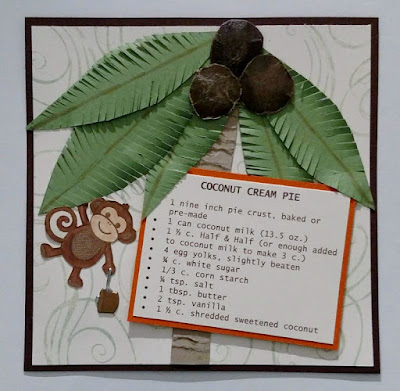 COCONUT CREAM PIE
• 1 nine inch pie crust, baked or
pre-made
• 1 can coconut milk (13.5 oz.)
• 1 ½ c. Half & Half (or enough added
to coconut milk to make 3 c.)
• 4 egg yolks, slightly beaten
• ¾ c. white sugar
• 1/3 c. corn starch
• ¼ tsp. salt
• 1 tbsp. butter
• 2 tsp. vanilla
• 1 ½ c. shredded sweetened coconut